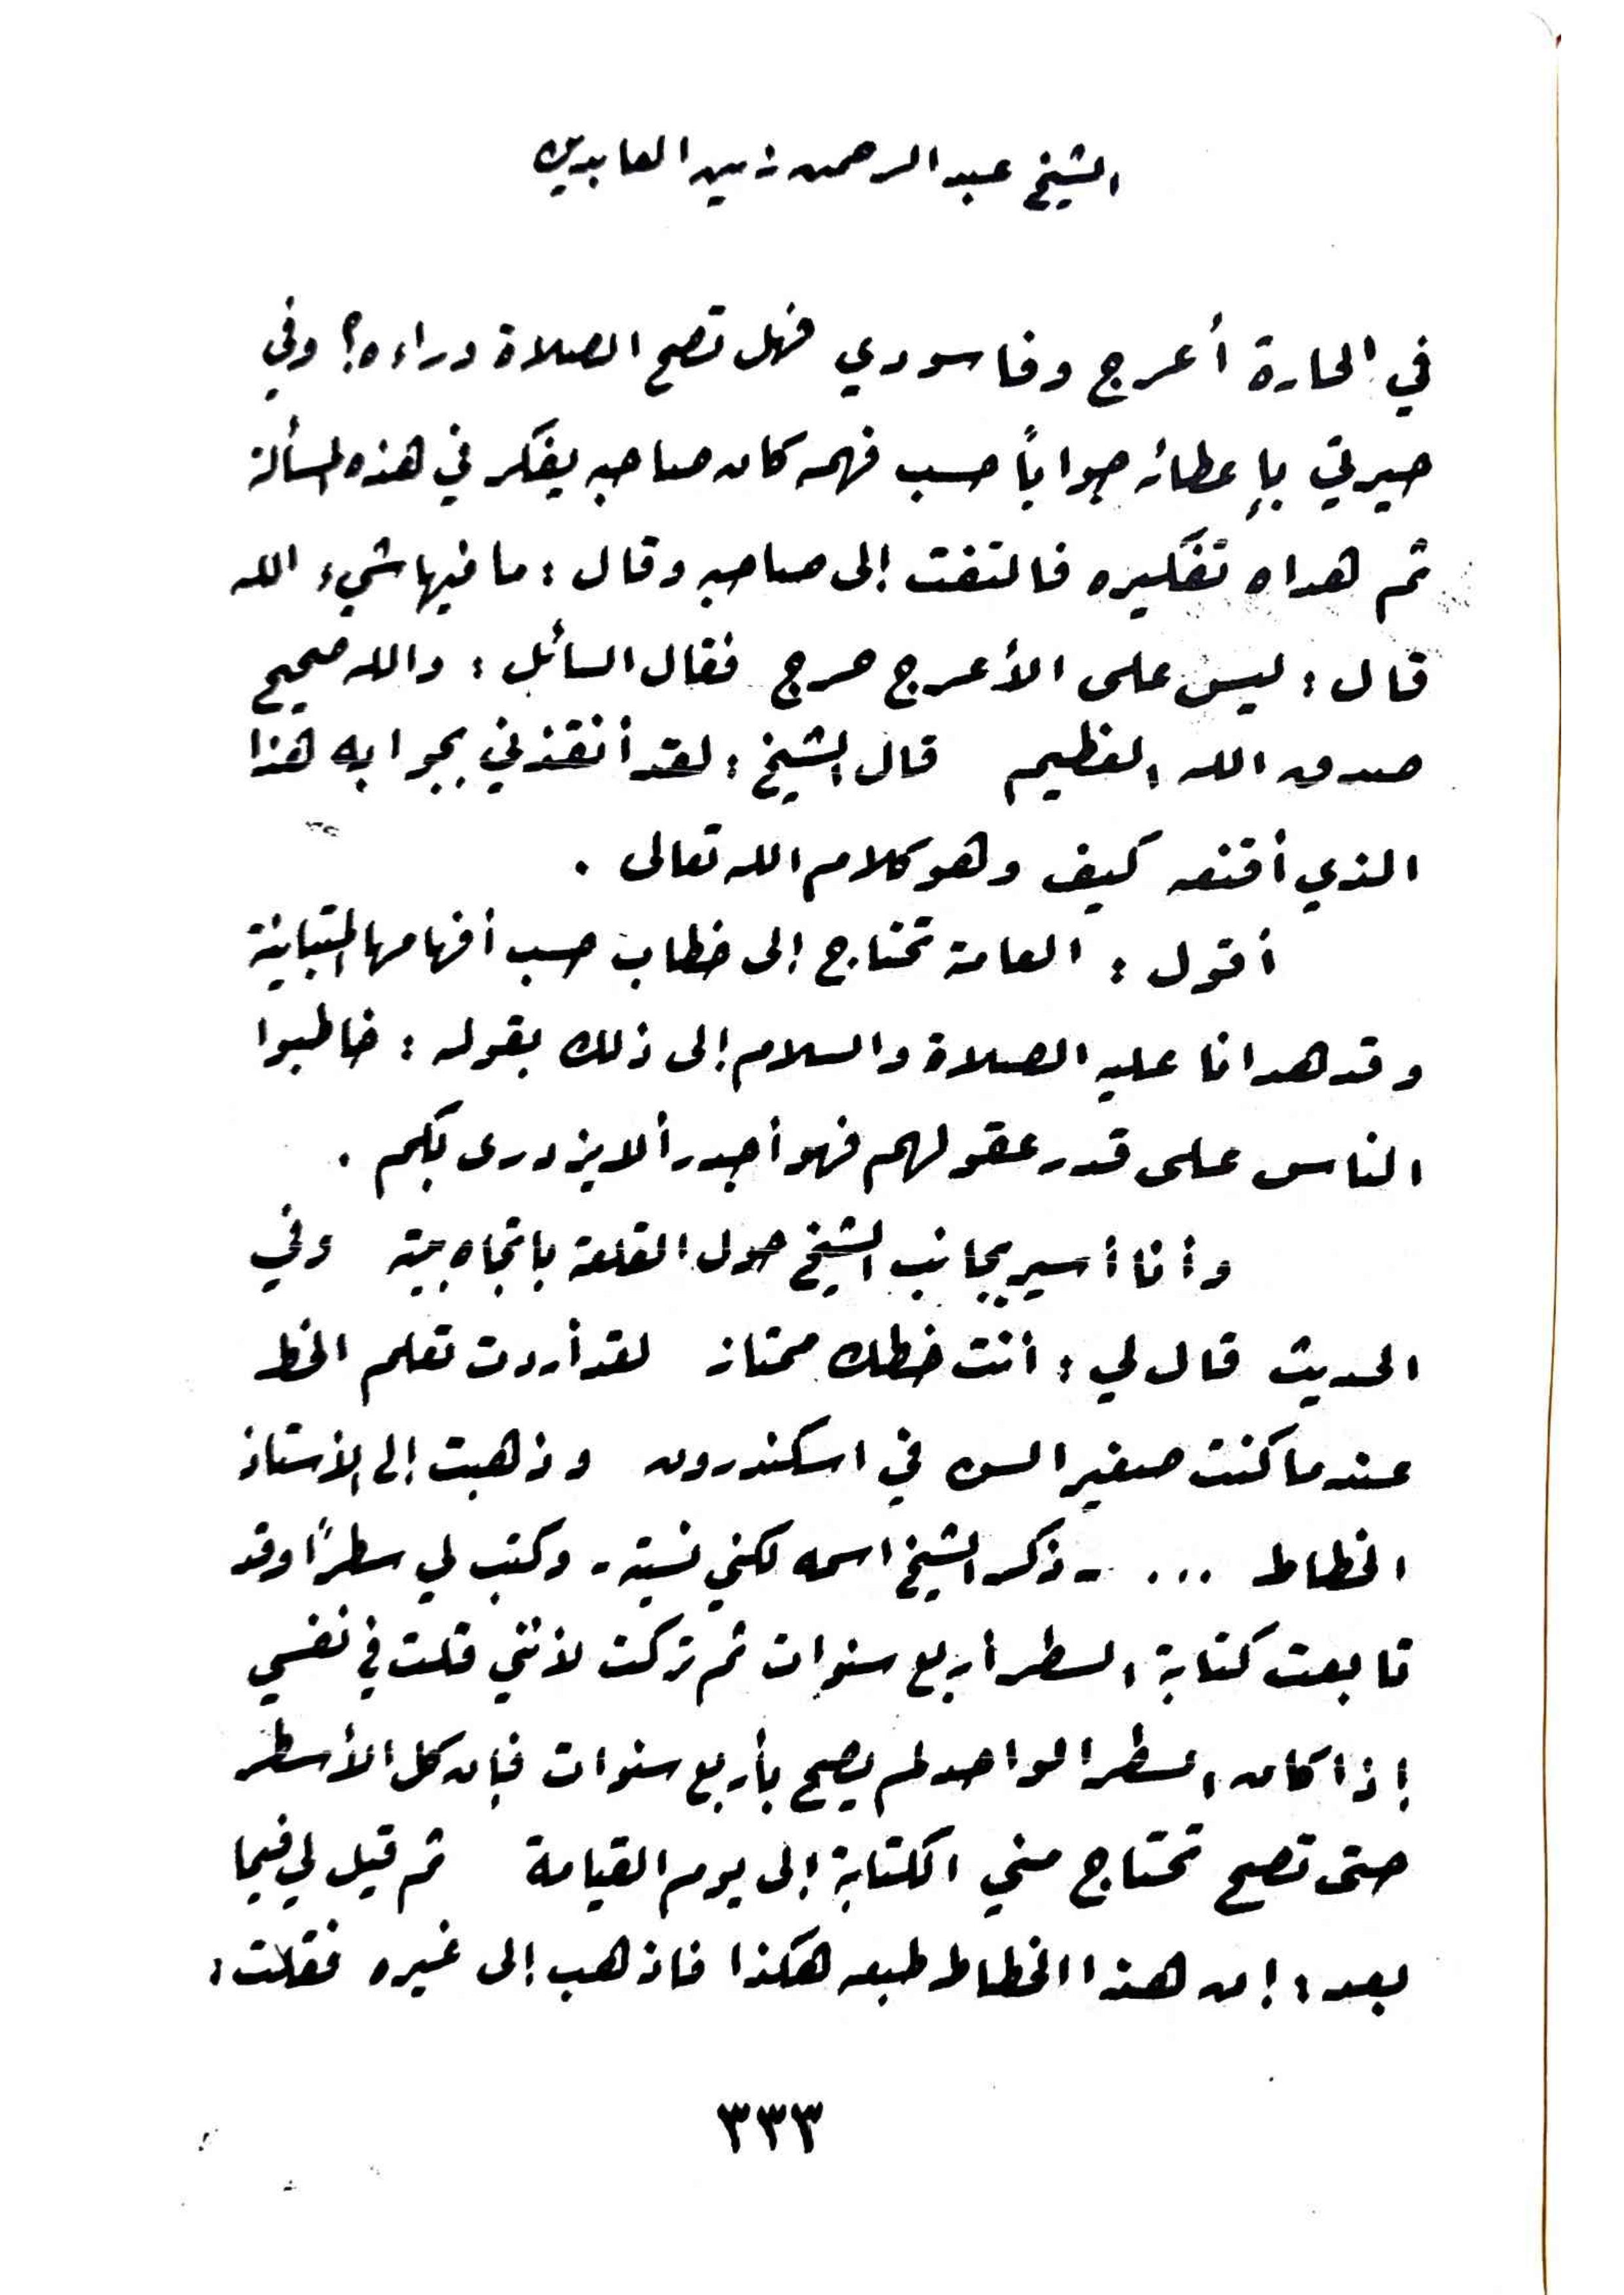 الشيخ عبد الرحمن زين العابدين
في الحارة أعرج وفاسودي فهل تصح الصلاة وراءه؟ وفي
حيرتي بإعطائه جواباً حسب فهمه كان صاحبه يفكر في هذه المسألة
ثم هداه تفكيره فالتفت إلى صاحبه وقال : ما فيها شيء الله
قال : ليس على الأعرج حرج فقال السائل : والله صحيح
صدق الله العظيم قال الشيخ : لقد أنقذني بجوابه هذا
الذي أقنعه كيف وهو كلام الله تعالى .
أقول : العامة تحتاج إلى خطاب حسب أفهامها المتباينة
وقد هدانا عليه الصلاة والسلام إلى ذلك بقوله : خاطبوا
الناس على قدر عقولهم فهو أجدر ألا يزدرى بكم .
وأنا أسير بجانب الشيخ حول القلعة باتجاه بيته وفي
الحديث قال لي : أنت خطك ممتاز لقد أردت تعلم الخط
عندما كنت صغير السن في اسكندرون وذهبت إلى الأستاذ
الخطاط ... - ذكر الشيخ اسمه لكني نسيته - وكتب لي سطراً وقد
تابعت كتابة السطر أربع سنوات ثم تركت لأنني قلت في نفسي
إذا كان السطر الواحد لم يصح بأربع سنوات فإن كل الأسطر
حتى تصح تحتاج مني الكتابة إلى يوم القيامة ثم قيل لي فيما
بعد : إن هذا الخطاط طبعه هكذا فاذهب إلى غيره فقلت :
٣٣٣